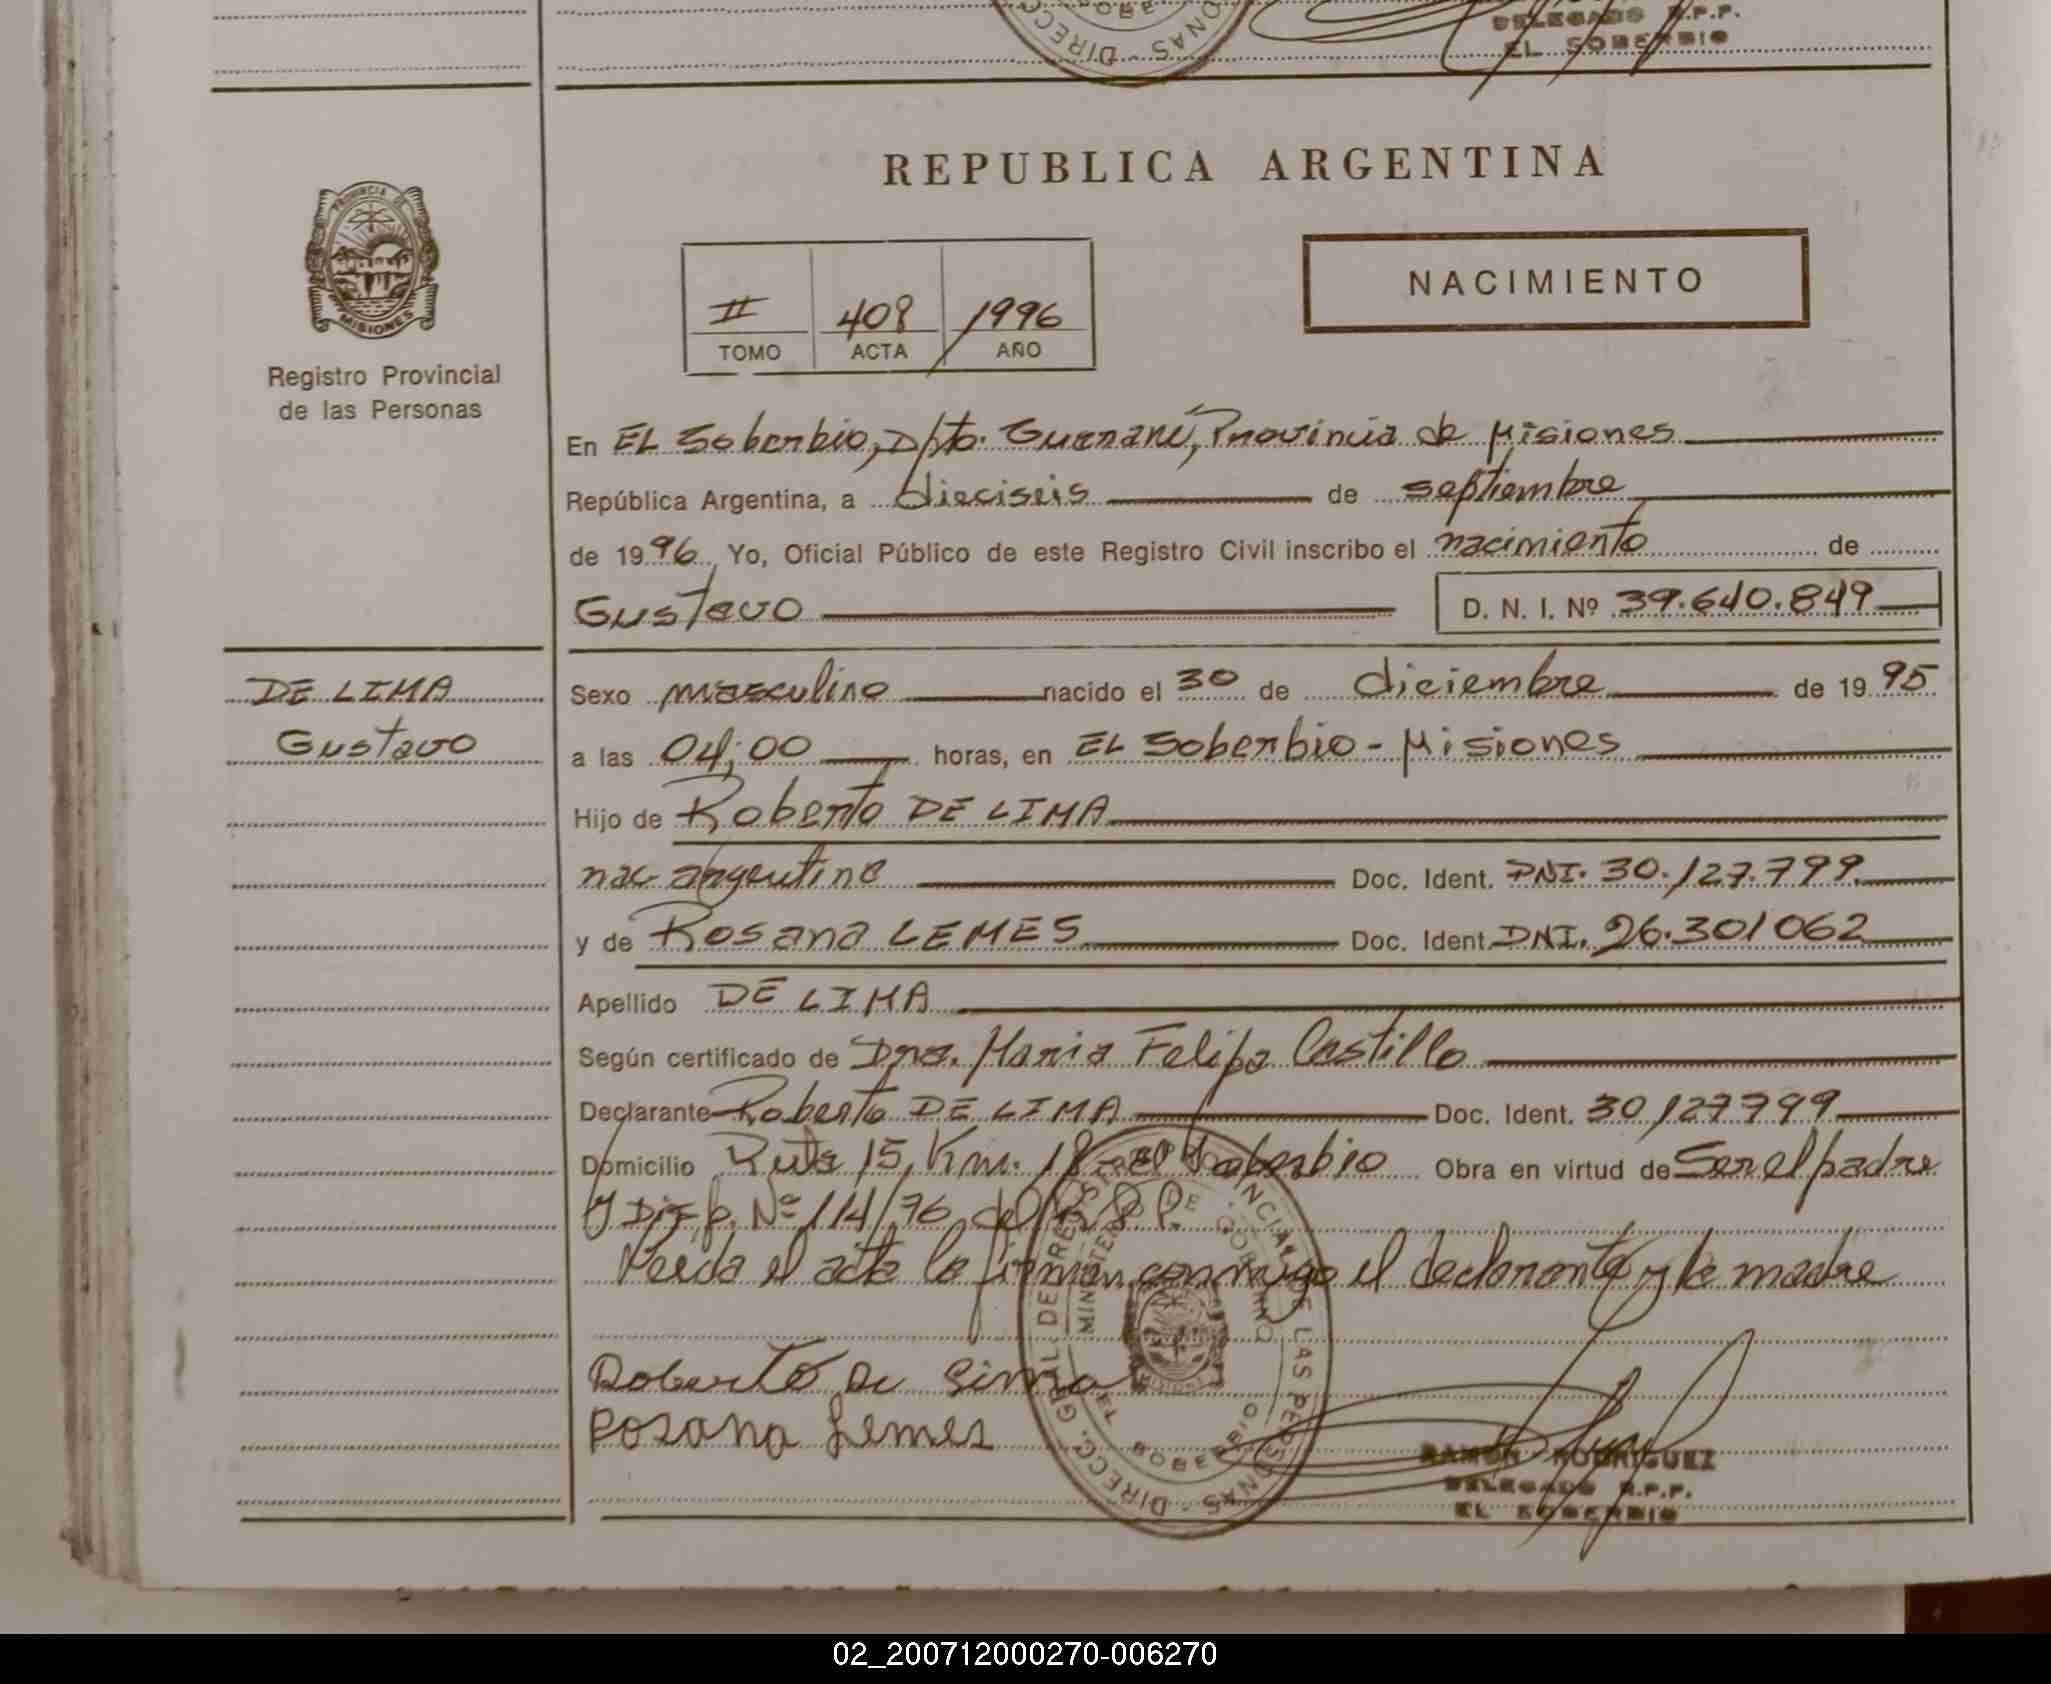 DELEGADO R.P.P.
EL SOBERBIO
REPUBLICA ARGENTINA
PROVINCIA DE MISIONES
Registro Provincial
de las Personas
II 408 1996
TOMO ACTA AÑO
NACIMIENTO
En EL Soberbio, Dpto. Guaraní, Provincia de Misiones
República Argentina, a dieciseis de septiembre
de 1996, Yo, Oficial Público de este Registro Civil inscribo el nacimiento de
Gustavo D. N. I. Nº 39.640.849
DE LIMA
Gustavo
Sexo masculino nacido el 30 de diciembre de 1995
a las 04;00 horas, en EL Soberbio - Misiones
Hijo de Roberto DE LIMA
nac argentina Doc. Ident. DNI. 30.127.799
y de Rosana LEMES Doc. Ident. DNI. 26.301062
Apellido DE LIMA
Según certificado de Dra. Maria Felipa Castillo
Declarante Roberto DE LIMA Doc. Ident. 30127799
Domicilio Ruta 15, Km. 18 - el Soberbio Obra en virtud de Ser el padre
y Disp. Nº 114/76 del R.P.P.
Leida el acta la firman conmigo el declarante y la madre
Roberto De Lima
Rosana Lemes
DIRECC. GRAL. DE REGISTRO PROVINCIAL DE LAS PERSONAS
MINISTERIO DE GOBIERNO
EL SOBERBIO
RAMON RODRIGUEZ
DELEGADO R.P.P.
EL SOBERBIO
02_200712000270-006270